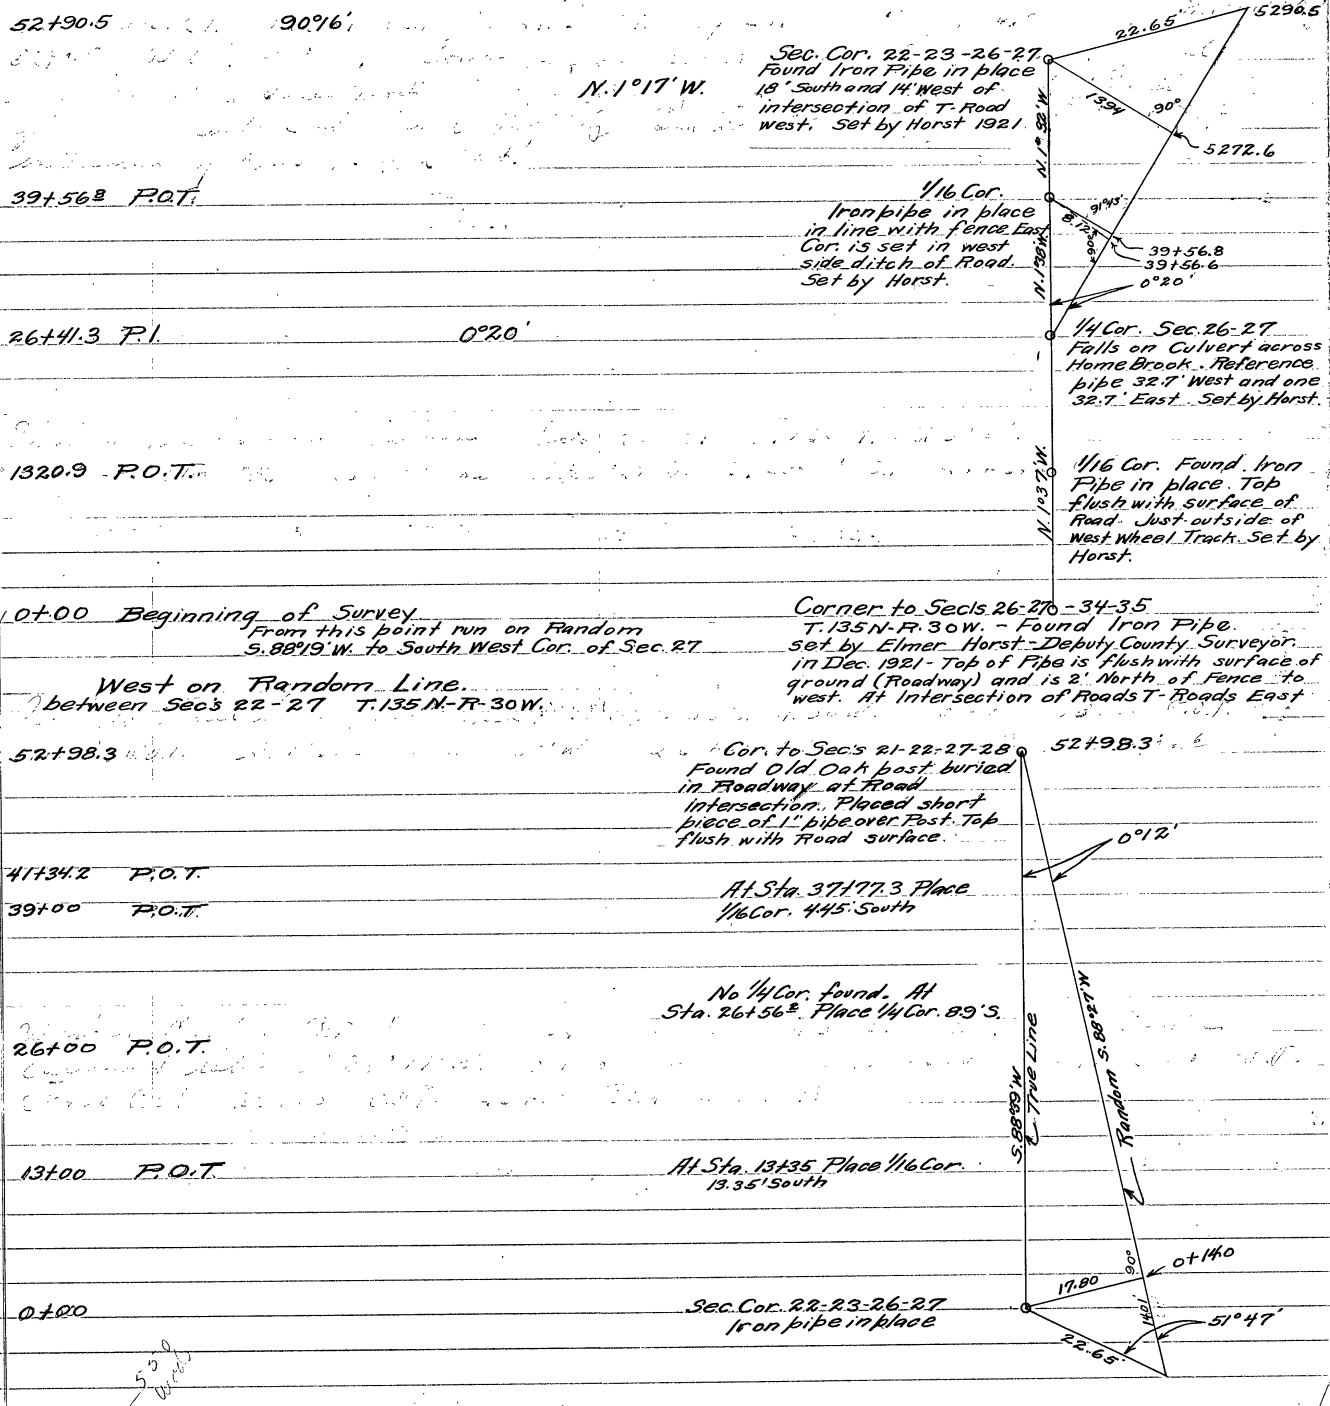 52+90.5 90°16'
5290.5
22.65'
Sec. Cor. 22-23-26-27
Found Iron Pipe in place
18' South and 14' West of
intersection of T-Road
West. Set by Horst 1921
N. 1°17' W.
13.94
90°
5272.6
39+56⁸ P.O.T.
1/16 Cor.
Iron pipe in place
in line with fence East
Cor. is set in west
side ditch of Road.
Set by Horst.
91°43'
8.12
39+56.8
39+56.6
0°20'
26+41.3 P.I. 0°20'
1/4 Cor. Sec. 26-27
Falls on Culvert across
Home Brook. Reference
pipe 32.7' West and one
32.7' East Set by Horst.
1320.9 P.O.T.
N. 1°37' W.
1/16 Cor. Found Iron
Pipe in place. Top
flush with surface of
Road. Just outside of
West Wheel Track. Set by
Horst.
0+00 Beginning of Survey
From this point run on Random
S. 88°19' W. to South West Cor. of Sec. 27
Corner to Secs 26-27-34-35
T. 135 N-R. 30 W. - Found Iron Pipe.
set by Elmer Horst - Deputy County Surveyor.
in Dec. 1921 - Top of Pipe is flush with surface of
ground (Roadway) and is 2' North of Fence to
west. At Intersection of Roads T-Roads East
West on Random Line.
between Sec's 22-27 T. 135 N-R-30 W.
52+98.3
Cor. to Sec's 21-22-27-28
Found Old Oak post buried
in Roadway at Road
intersection. Placed short
piece of 1" pipe over Post. Top
flush with Road surface.
52+98.3
0°12'
41+34.2 P.O.T.
39+00 P.O.T.
At Sta. 37+77.3 Place
1/16 Cor. 4.45' South
No 1/4 Cor. found. At
Sta. 26+56² Place 1/4 Cor. 8.9' S.
26+00 P.O.T.
S. 88°39' W.
True Line
Random S. 88°27' W.
13+00 P.O.T.
At Sta. 13+35 Place 1/16 Cor.
13.35' South
0+00
Sec. Cor. 22-23-26-27
Iron pipe in place
17.80
90°
0+14.0
14.01'
51°47'
22.65'